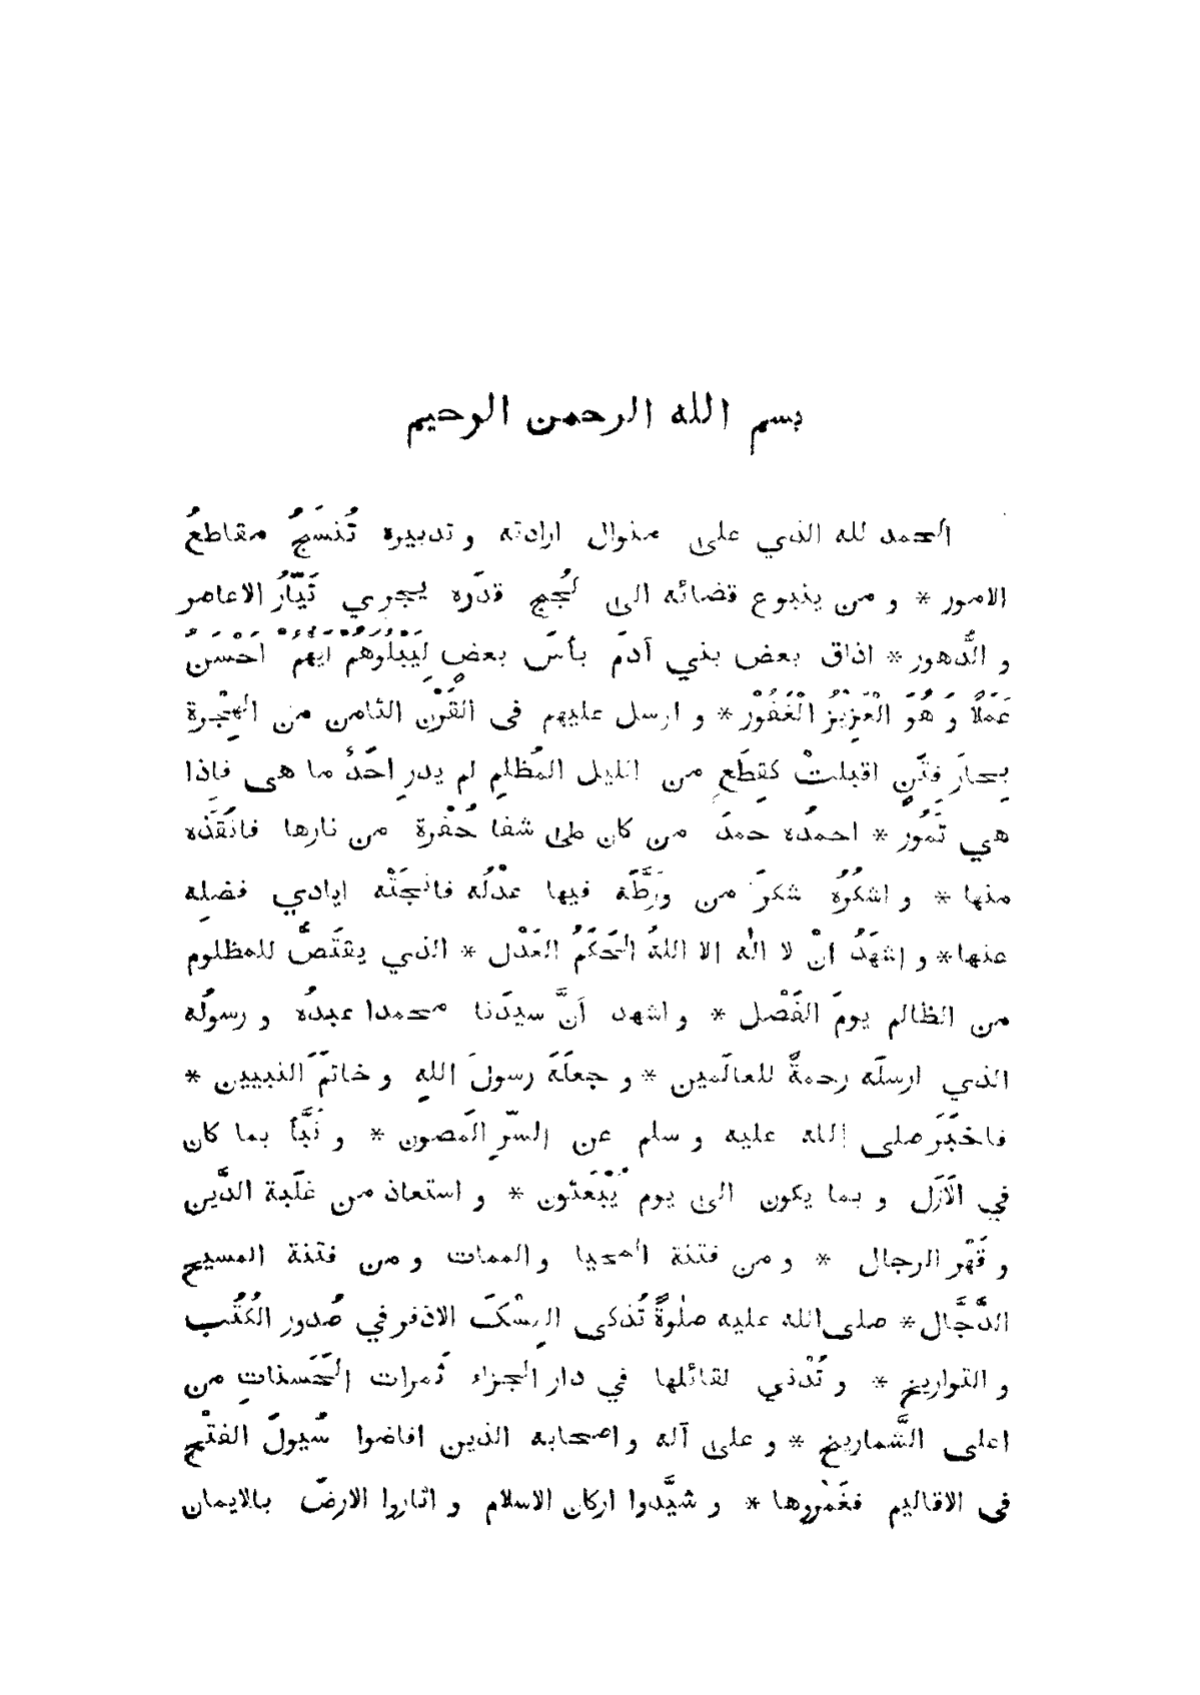 بسم الله الرحمن الرحيم
الحمد لله الذي على منوال ارادته و تدبيره تُنسَجُ مقاطعُ
الامور * و من ينبوع قضائه الى لُجج قدَره يجرِي تَيّارُ الاعاصر
و الدُّهور * اذاق بعض بني آدمَ بأسَ بعضٍ لِيَبْلُوَهُمْ اَيُّهُمْ اَحْسَنُ
عَمَلاً وَ هُوَ الْعَزِيْزُ الْغَفُوْر * و ارسل عليهم فى القَرْن الثامن من الهِجْرة
بِحارَ فتَنٍ اقبلتْ كقِطَعِ من الليل المُظلمِ لم يدرِ احَدٌ ما هى فاِذا
هي تَمُوُر * احمدُه حمدَ من كان على شفا حُفْرة من نارها فانْقَذه
منها * و اشكُرُه شكرَ من ورَّطَه فيها عدْلُه فانْجَتْه ايادي فضلِه
عنها * و اشهَدُ انْ لا اله الا اللهُ الحَكَمُ العَدْل * الذي يقتَصُّ للمظلوم
من الظالم يومَ الفَصْل * و اشهد اَنَّ سيدَنا محمدا عبدُه و رسولُه
الذي ارسلَه رحمةً للعالَمين * و جعلَهَ رسولَ اللهِ و خاتَمَ النبيين *
فاخبَرَ صلى الله عليه و سلم عن السرّ المَصون * و نَبَّأ بما كان
في الاَزَل و بما يكون الى يوم يُبْعَثون * و استعاذ من غلَبة الدَّين
و قَهْر الرجال * و من فتنة المحيا والممات و من فتنة المسيح
الدَّجَّال * صلى الله عليه صلٰوةً تُذكى المِسْكَ الاذفر في صُدور الكُتُب
و التواريخ * و تُدْني لقائلها في دار الجزاء ثَمرات الحَسَناتِ من
اعلى الشَّماريخ * و على آله و اصحابه الذين افاضوا سُيولَ الفتْح
فى الاقاليم فغَمَروها * و شيَّدوا اركان الاسلام و اثاروا الارضَ بالايمان